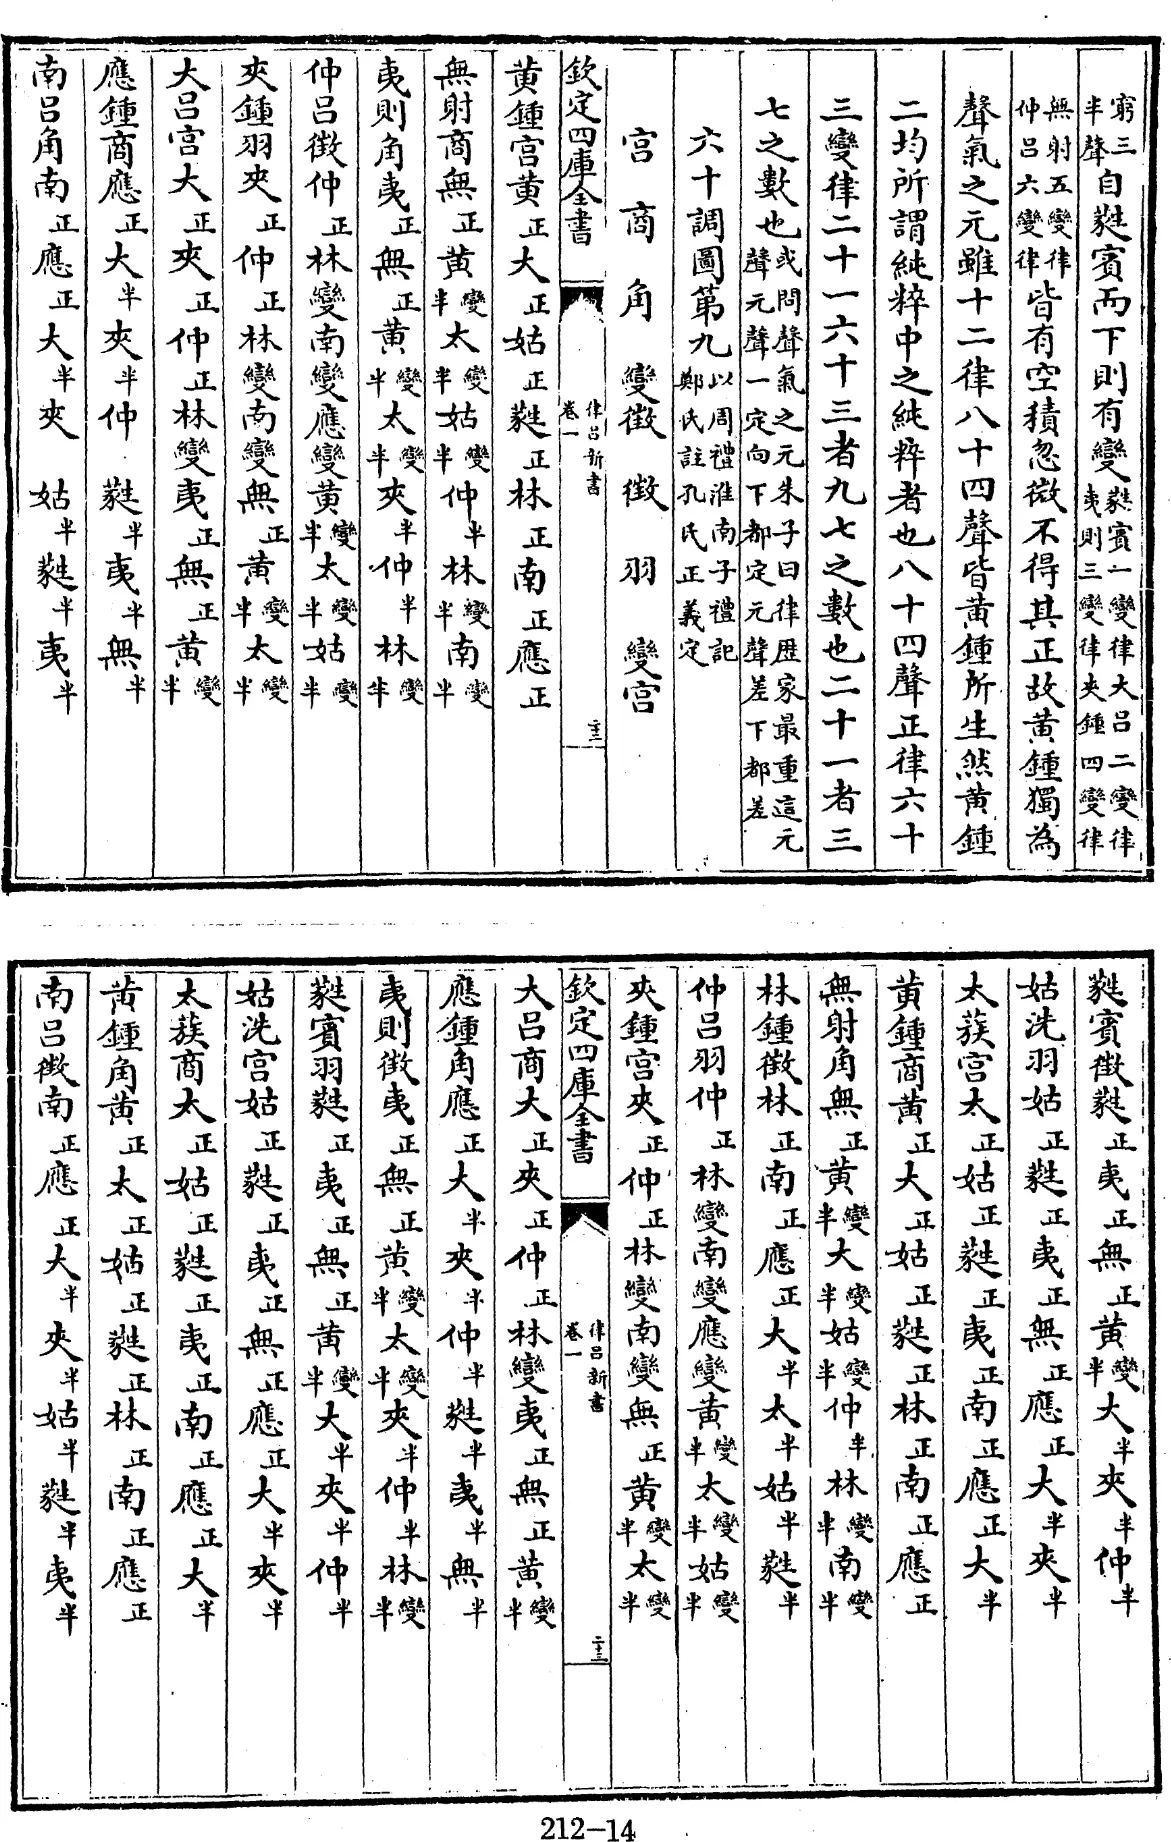 窮三半聲自蕤賓而下則有變蕤賓一變律大呂二變律夷則三變律夾鍾四變律
無射五變律仲呂六變律皆有空積忽微不得其正故黃鍾獨為
聲氣之元雖十二律八十四聲皆黃鍾所生然黃鍾
二均所謂純粹中之純粹者也八十四聲正律六十
三變律二十一六十三者九七之數也二十一者三
七之數也或問聲氣之元朱子曰律歴家最重這元聲元聲一定向下都定元聲差下都差
六十調圖第九以周禮淮南子禮記鄭氏註孔氏正義定
宮 商 角 變徵 徵 羽 變宮
欽定四庫全書 律呂新書 卷一 二十三
黃鍾宮黃正大正姑正蕤正林正南正應正
無射商無正黃變半太變半姑變半仲半林變半南變半
夷則角夷正無正黃變半太變半夾半仲半林變半
仲呂徵仲正林變南變應變黃變半太變半姑變半
夾鍾羽夾正仲正林變南變無正黃變半太變半
大呂宮大正夾正仲正林變夷正無正黃變半
應鍾商應正大半夾半仲 蕤半夷半無半
南呂角南正應正大半夾 姑半蕤半夷半
蕤賓徵蕤正夷正無正黃變半大半夾半仲半
姑洗羽姑正蕤正夷正無正應正大半夾半
太蔟宮太正姑正蕤正夷正南正應正大半
黃鍾商黃正大正姑正蕤正林正南正應正
無射角無正黃變半大變半姑變半仲半林變半南變半
林鍾徵林正南正應正大半太半姑半蕤半
仲呂羽仲正林變南變應變黃變半太變半姑變半
夾鍾宮夾正仲正林變南變無正黃變半太變半
欽定四庫全書 律呂新書 卷一 二十三
大呂商大正夾正仲正林變夷正無正黃變半
應鍾角應正大半夾半仲半蕤半夷半無半
夷則徵夷正無正黃變半太變半夾半仲半林變半
蕤賓羽蕤正夷正無正黃變半大半夾半仲半
姑洗宮姑正蕤正夷正無正應正大半夾半
太蔟商太正姑正蕤正夷正南正應正大半
黃鍾角黃正太正姑正蕤正林正南正應正
南呂徵南正應正大半夾半姑半蕤半夷半
212-14